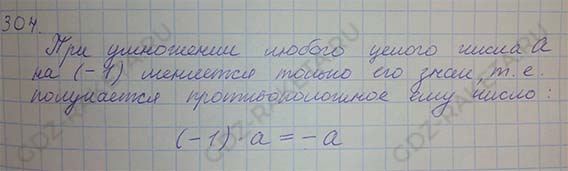 304.
При умножении любого целого числа a
на (-1) меняется только его знак, т.е.
получается противоположное ему число:
(-1) · a = -a
GDZ-RAKETA.RU